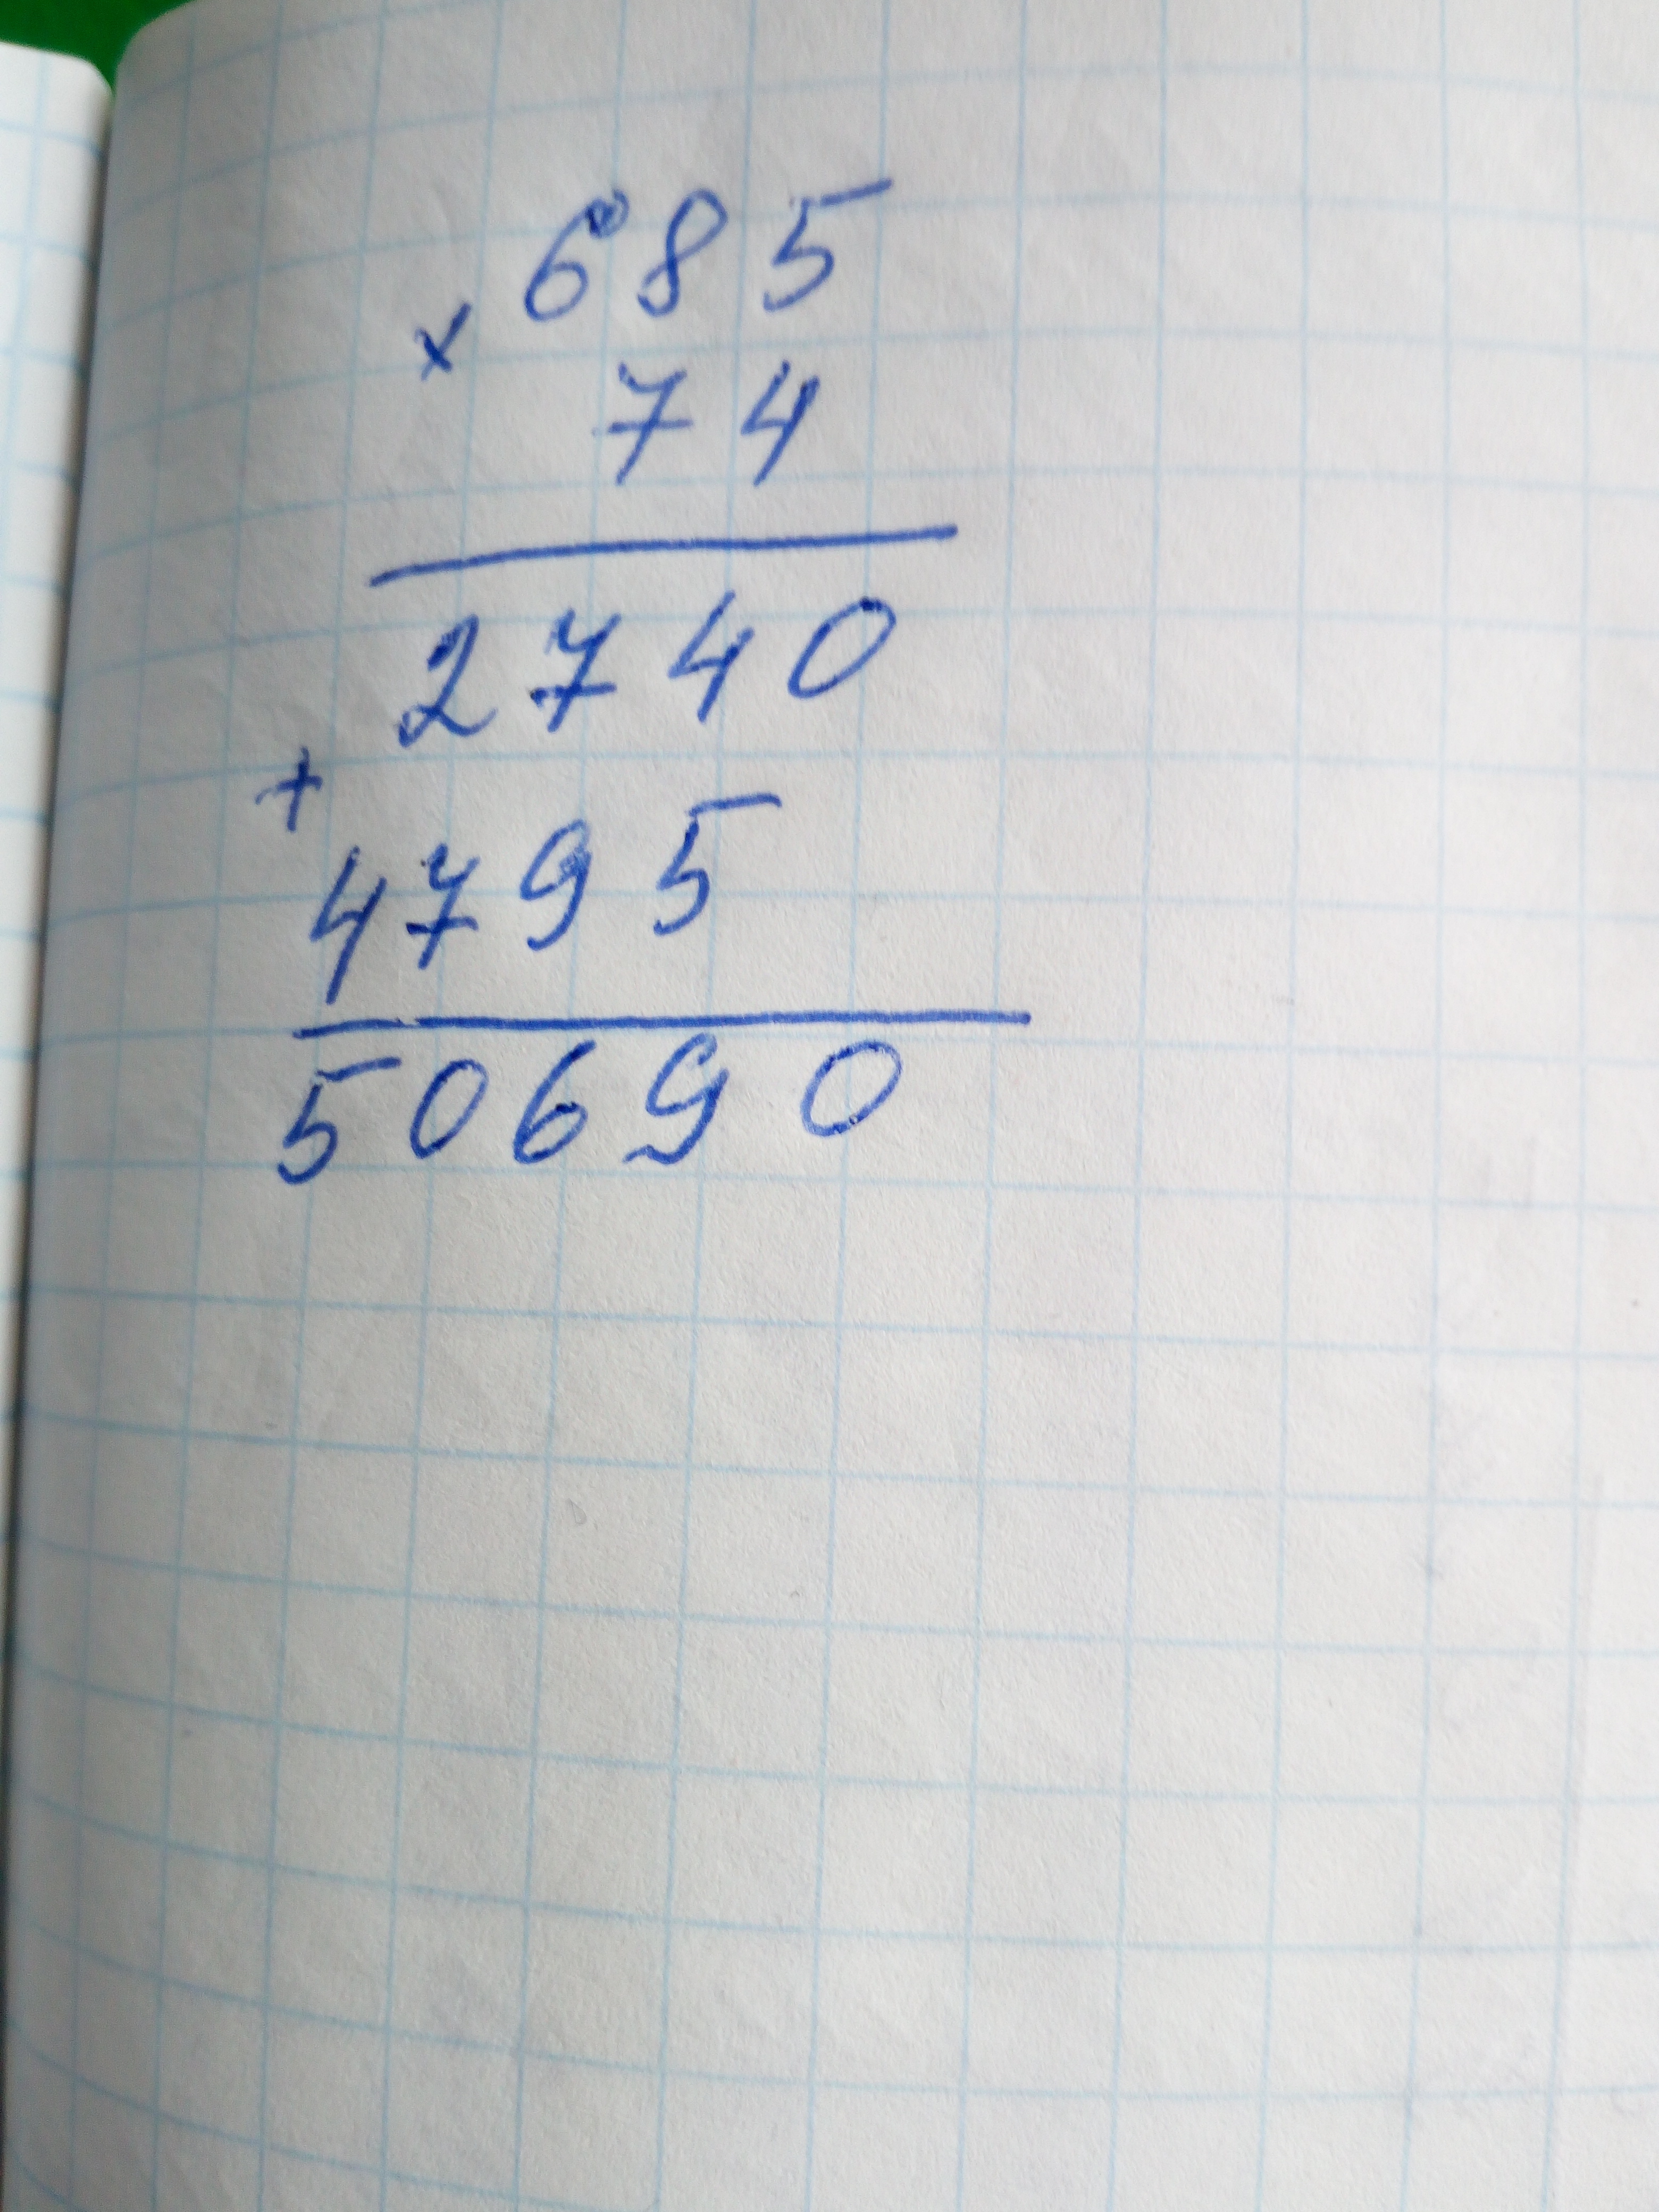 685
×
74
2740
+
4795
50690